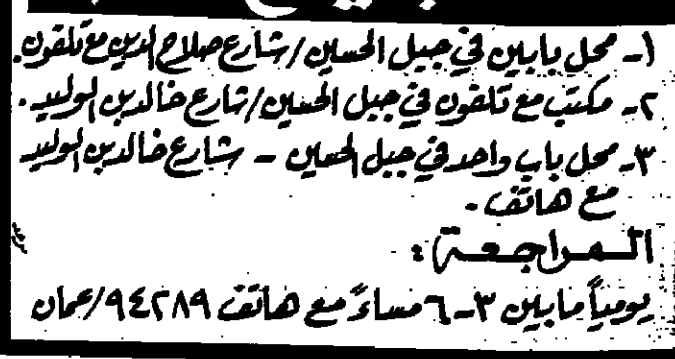 ١ـ محل بابين في جبل الحسين / شارع صلاح الدين مع تلفون.
٢ـ مكتب مع تلفون في جبل الحسين / شارع خالد بن الوليد.
٣ـ محل باب واحد في جبل الحسين - شارع خالد بن الوليد
مع هاتف.
المراجعة:
يومياً ما بين ٣ـ٦ مساءً مع هاتف ٩٤٢٨٩/عمان